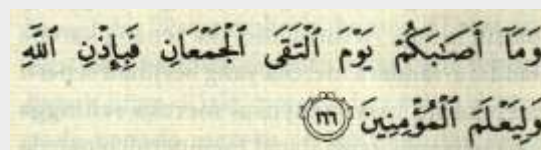 وَمَآ أَصَٰبَكُمْ يَوْمَ ٱلْتَقَى ٱلْجَمْعَانِ فَبِإِذْنِ ٱللَّهِ
وَلِيَعْلَمَ ٱلْمُؤْمِنِينَ ١٦٦